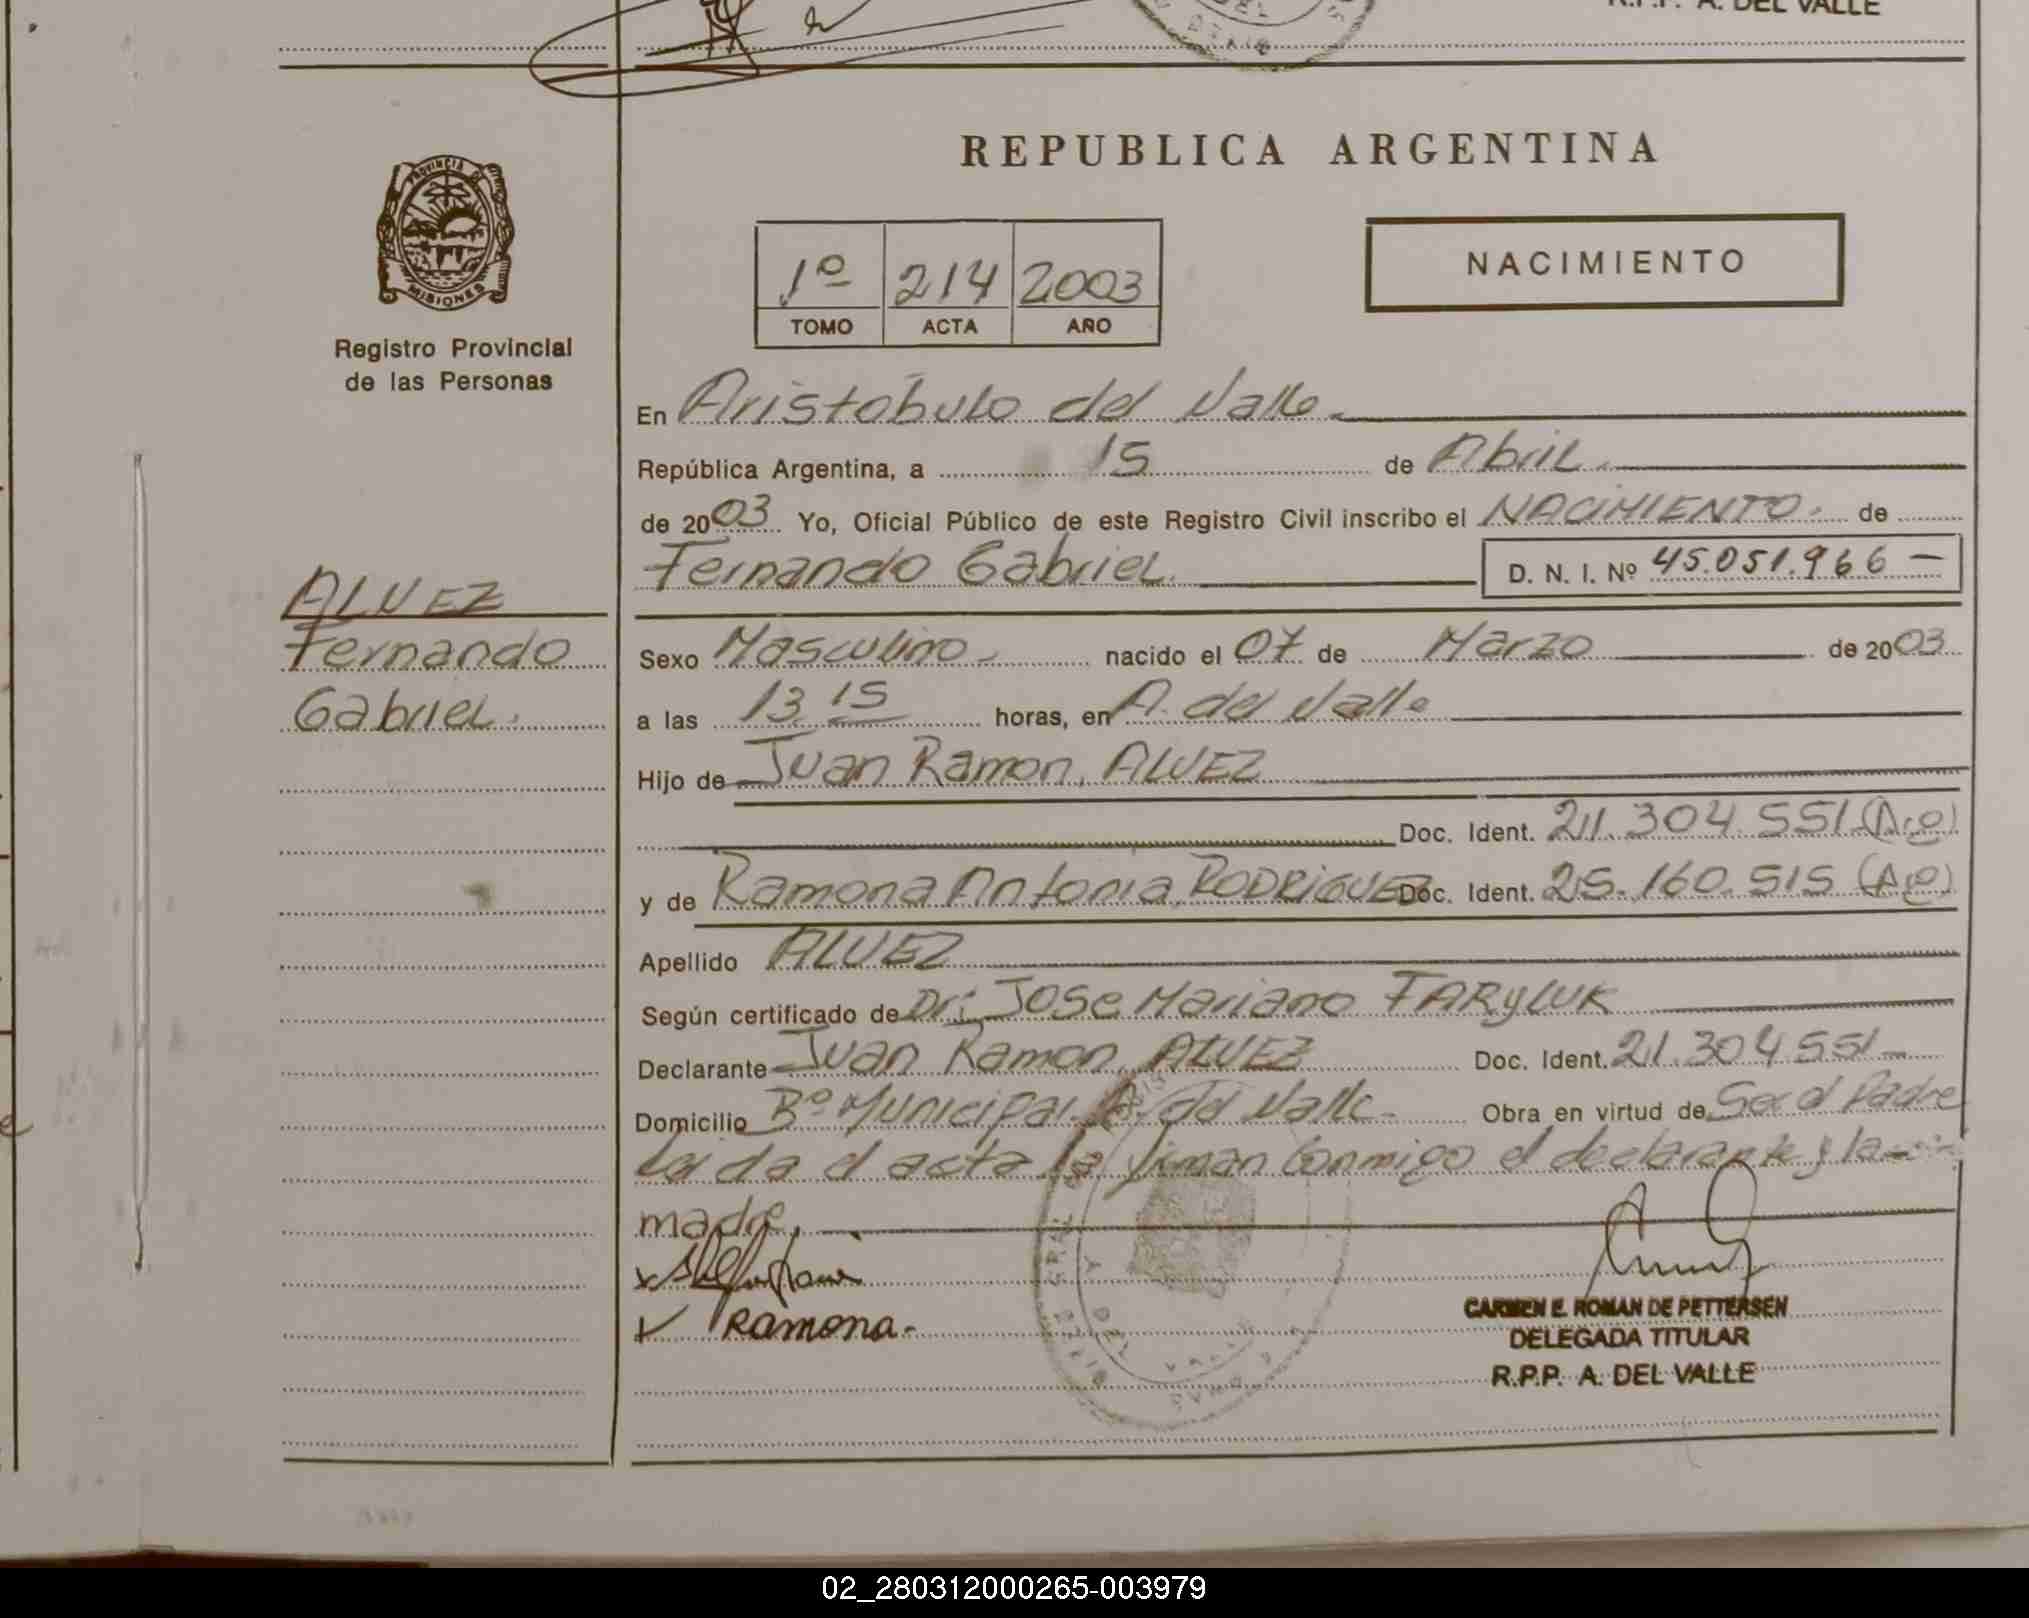 R.P.P. A. DEL VALLE
PROVINCIA DE
MISIONES
Registro Provincial
de las Personas
ALVEZ
Fernando
Gabriel.
REPUBLICA ARGENTINA
1º 214 2003
TOMO ACTA AÑO
NACIMIENTO
En Aristóbulo del Valle.
República Argentina, a 15 de Abril.
de 2003. Yo, Oficial Público de este Registro Civil inscribo el NACIMIENTO. de
Fernando Gabriel. D. N. I. Nº 45.051.966 —
Sexo Masculino nacido el 07 de Marzo de 2003
a las 13 15 horas, en A. del Valle
Hijo de Juan Ramon, ALVEZ
Doc. Ident. 21.304.551 (Arg)
y de Ramona Antonia, RODRIGUEZ Doc. Ident. 25.160.515 (Arg)
Apellido ALVEZ
Según certificado de Dr: Jose Mariano TARYLUK
Declarante Juan Ramon, ALVEZ Doc. Ident. 21.304.551
Domicilio Bº Municipal A. del Valle. Obra en virtud de Ser el Padre
Leida el acta la firman conmigo el declarante y la
madre.
Ramona.
CARMEN E. ROMAN DE PETTERSEN
DELEGADA TITULAR
R.P.P. A. DEL VALLE
02_280312000265-003979